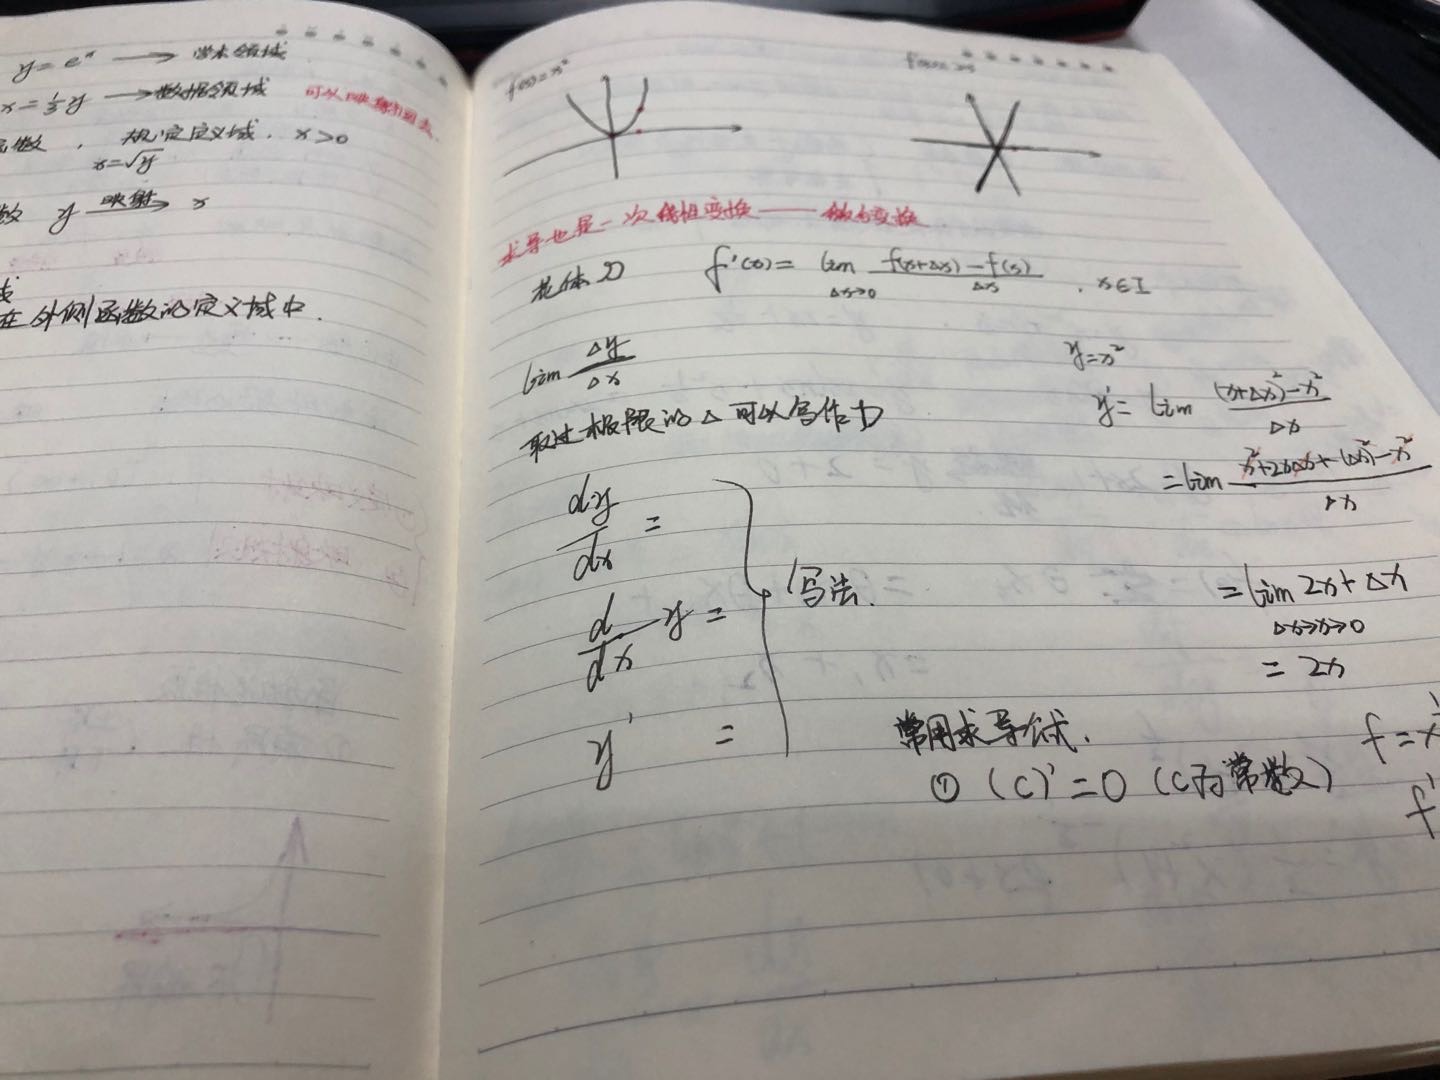 y = eˣ → 学术领域
x = ⅓y → 数据领域 可以映射回去.
函数, 规定定义域. x>0
x=√y
数 y 映射→ x
在外侧函数的定义域中.
f(x)=x²
求导也是一次线性变换——微分变换
花体D f'(x) = lim Δx→0 f(x+Δx)-f(x) / Δx , x∈I
lim Δy/Δx
取过极限的Δ可以写作d
dy/dx =
d/dx y =
y' =
写法.
y=x²
y' = lim (x+Δx)²-x² / Δx
= lim x²+2xΔx+(Δx)²-x² / Δx
= lim 2x+Δx
Δx→x→0
= 2x
常用求导公式.
① (C)'=0 (C为常数)
f =
f'